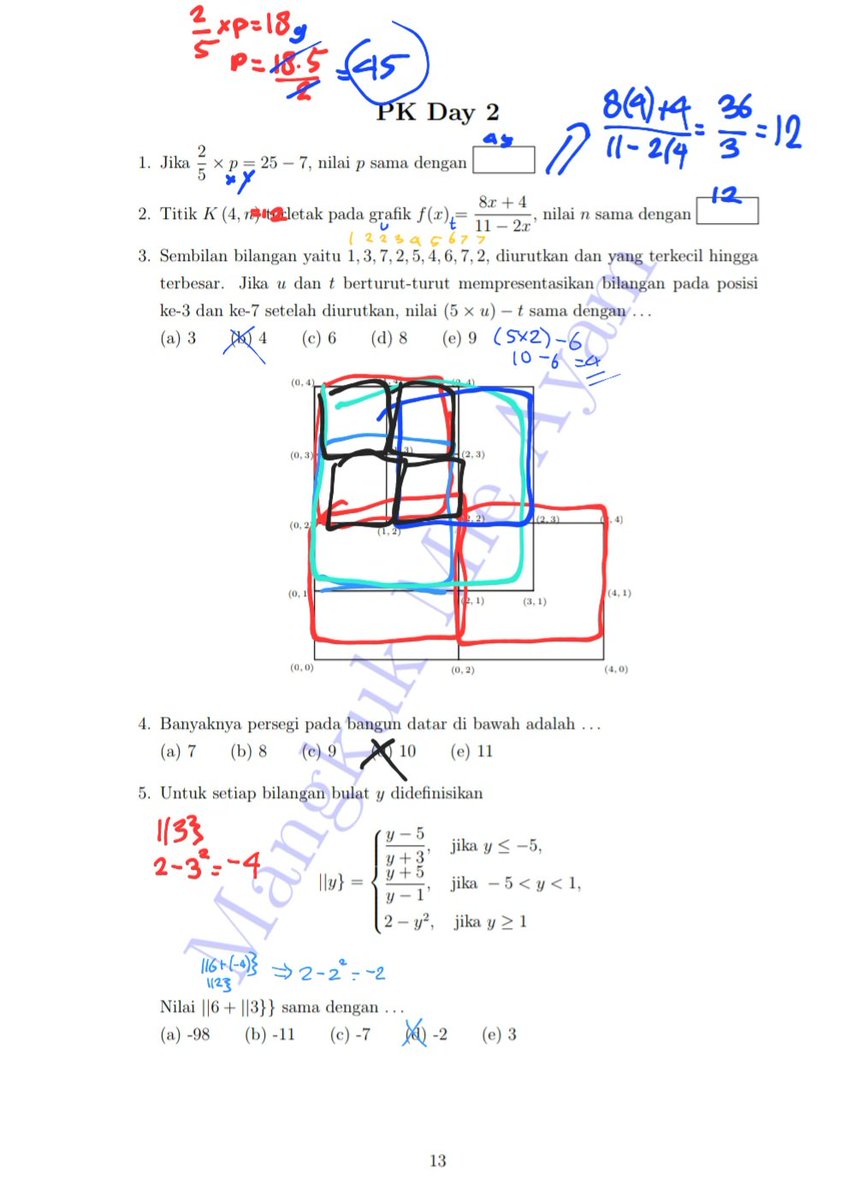 2/5 xp=18
p=18·5/2 = 45
PK Day 2
8(4)+4/11-2(4 = 36/3 = 12
1. Jika 2/5 × p = 25 − 7, nilai p sama dengan 45
2. Titik K (4, n) terletak pada grafik f(x) = 8x + 4/11 − 2x, nilai n sama dengan 12
u t
1 2 2 3 4 5 6 7 7
3. Sembilan bilangan yaitu 1, 3, 7, 2, 5, 4, 6, 7, 2, diurutkan dan yang terkecil hingga
terbesar. Jika u dan t berturut-turut mempresentasikan bilangan pada posisi
ke-3 dan ke-7 setelah diurutkan, nilai (5 × u) − t sama dengan ...
(a) 3 (b) 4 (c) 6 (d) 8 (e) 9 (5x2)-6
10-6 =4
(0, 4)
(0, 3) (2, 3)
(0, 2) (1, 2) (2, 3)
(0, 1 (2, 1) (3, 1) (4, 1)
(0, 0) (0, 2) (4, 0)
4. Banyaknya persegi pada bangun datar di bawah adalah ...
(a) 7 (b) 8 (c) 9 10 (e) 11
5. Untuk setiap bilangan bulat y didefinisikan
||3}
2-3²=-4
||y} = { y − 5/y + 3, jika y ≤ −5,
y + 5/y − 1, jika − 5 < y < 1,
2 − y², jika y ≥ 1
||6+(-4)} ⇒ 2-2² = -2
||2}
Nilai ||6 + ||3}} sama dengan ...
(a) -98 (b) -11 (c) -7 (d) -2 (e) 3
13
Mangkuk Mie Ayam